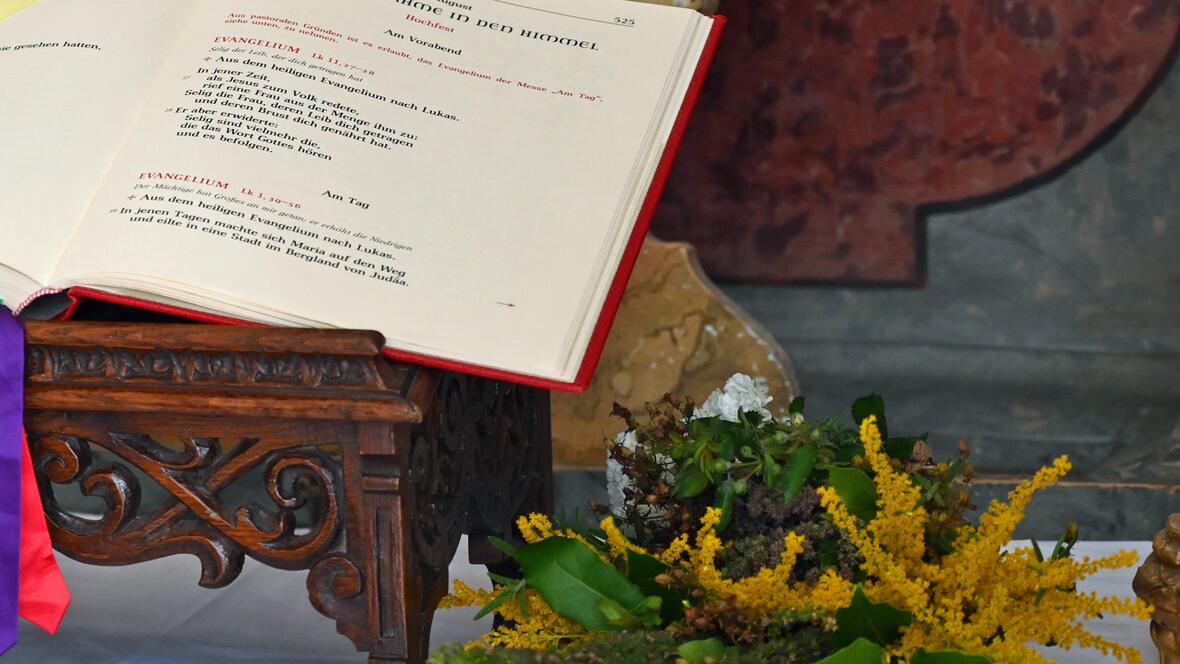 ie gesehen hatten.
ugust
525
HME IN DEN HIMMEL
Hochfest
Am Vorabend
Aus pastoralen Gründen ist es erlaubt, das Evangelium der Messe „Am Tag“,
siehe unten, zu nehmen.
EVANGELIUM Lk 11,27–28
Selig der Leib, der dich getragen hat
✢ Aus dem heiligen Evangelium nach Lukas.
27 In jener Zeit,
als Jesus zum Volk redete,
rief eine Frau aus der Menge ihm zu:
Selig die Frau, deren Leib dich getragen
und deren Brust dich genährt hat.
28 Er aber erwiderte:
Selig sind vielmehr die,
die das Wort Gottes hören
und es befolgen.
Am Tag
EVANGELIUM Lk 1,39–56
Der Mächtige hat Großes an mir getan; er erhöht die Niedrigen
✢ Aus dem heiligen Evangelium nach Lukas.
39 In jenen Tagen machte sich Maria auf den Weg
und eilte in eine Stadt im Bergland von Judäa.
→